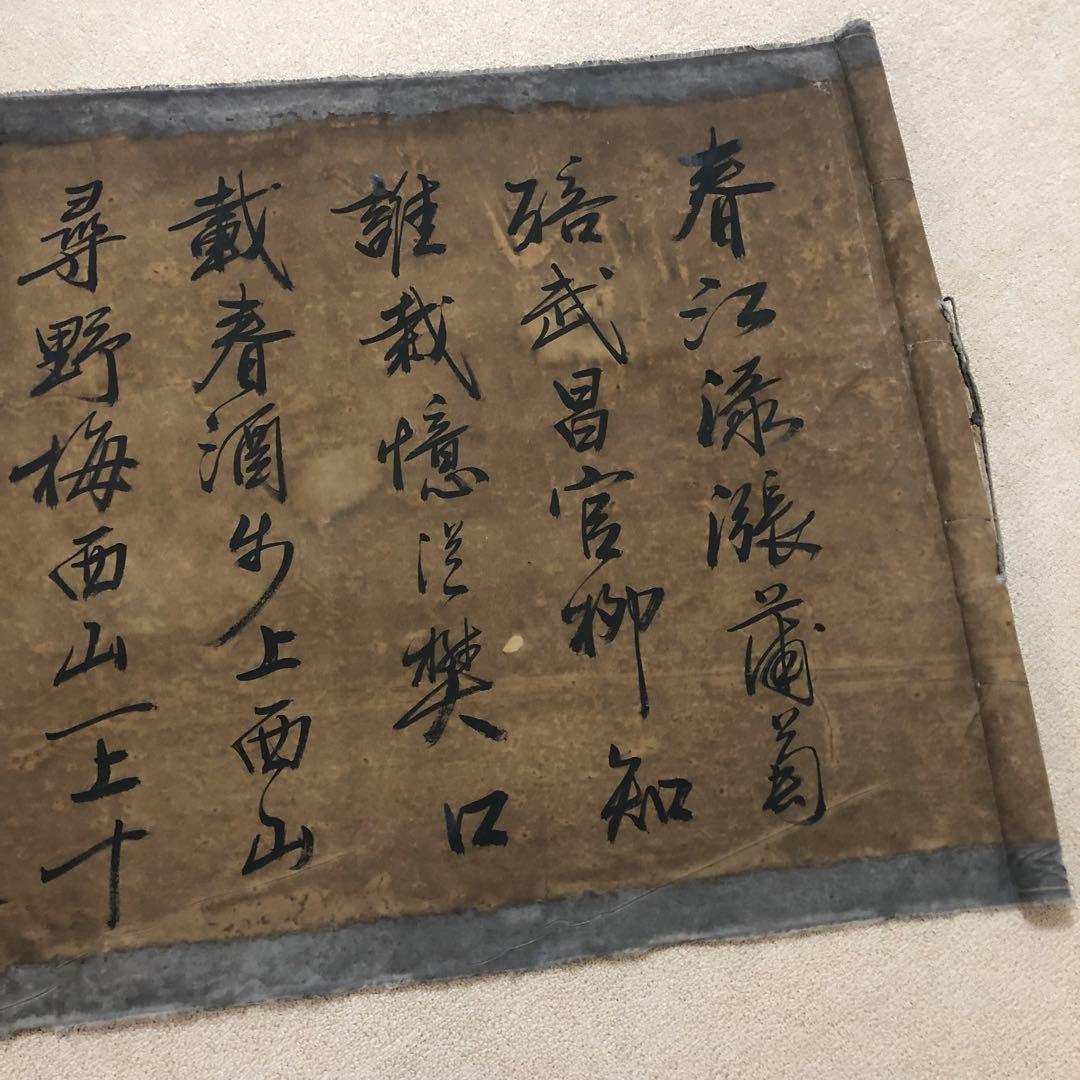 春江淥漲蒲萄
醅武昌官柳知
誰栽憶從樊口
載春酒步上西山
尋野梅西山一上十